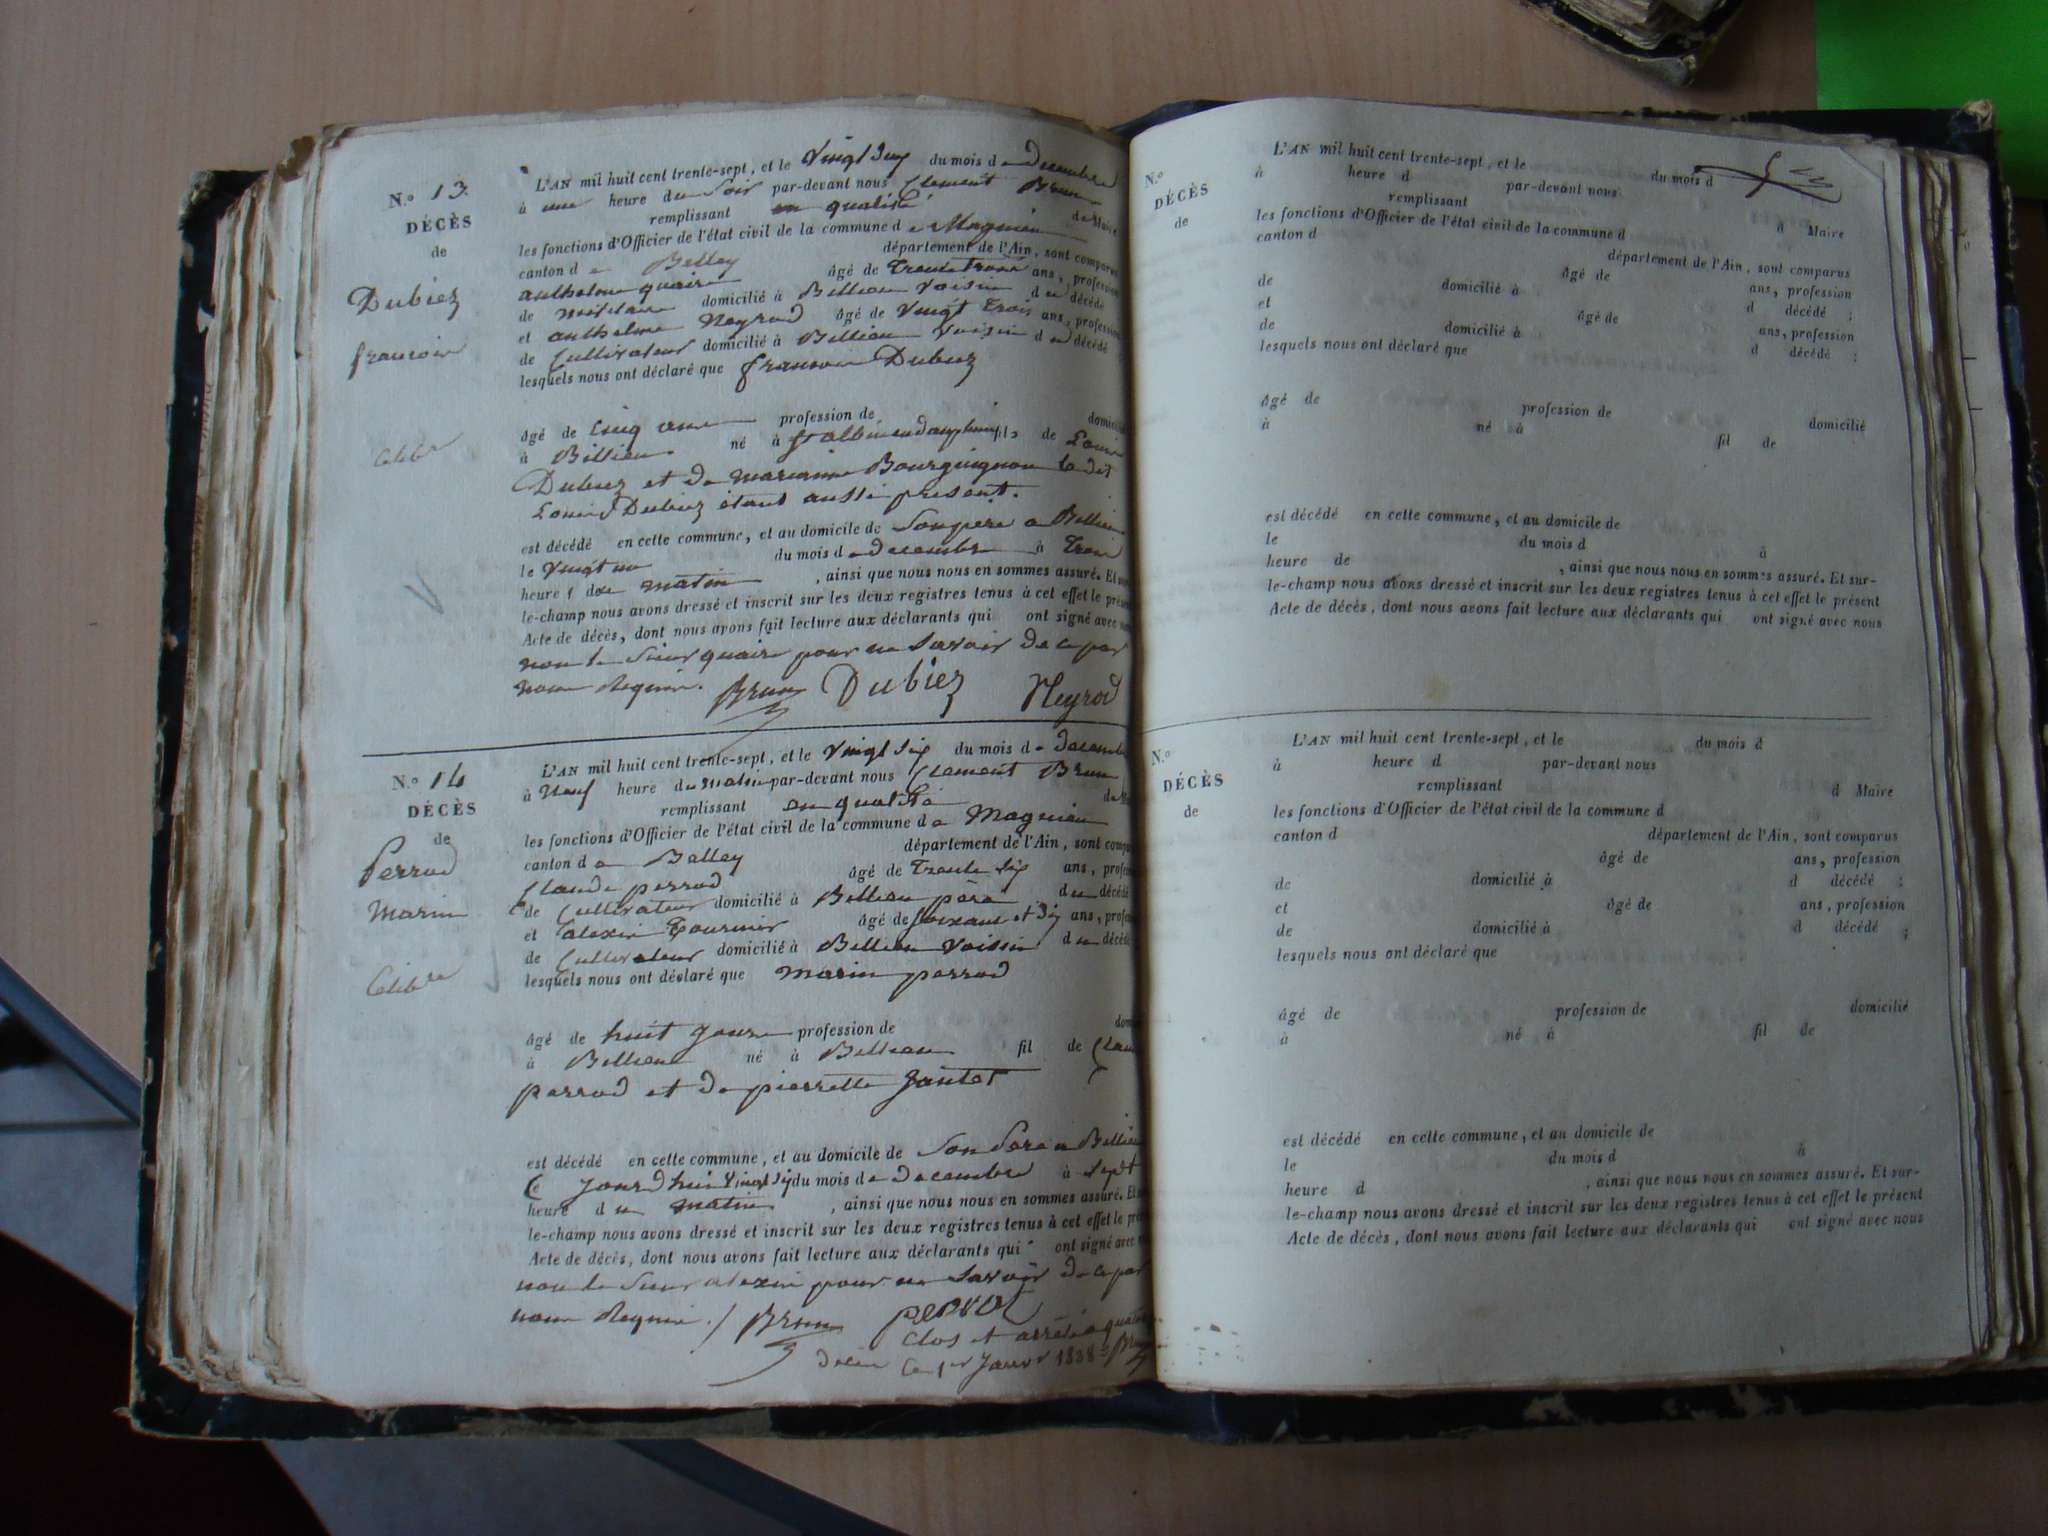 N.º 13
DÉCÈS
de
Dubiez
francois
Celibre
L'AN mil huit cent trente-sept, et le Vingt du mois de Decembre
à une heure du Soir par-devant nous Clement Brun
remplissant en qualité de Maire
les fonctions d'Officier de l'état civil de la commune de Magnieu
canton de Belley département de l'Ain, sont comparus
anthelme quaire âgé de Trente Trois ans, profession
de domicilié à Billieu Voisin du décédé
et anthelme Neyrod âgé de Vingt Trois ans, profession
de Cultivateur domicilié à Billieu Voisin du décédé
lesquels nous ont déclaré que francois Dubiez
âgé de Cinq ans profession de domicilié
à Billieu né à St albin en dauphine fils de Louis
Dubiez et de marianne Bourguignon le dit
Louis Dubiez étant aussi present.
est décédé en cette commune, et au domicile de Son pere a Billieu
le Vingt du mois de decembre à Trois
heures du matin, ainsi que nous nous en sommes assuré. Et sur-
le-champ nous avons dressé et inscrit sur les deux registres tenus à cet effet le présent
Acte de décès, dont nous avons fait lecture aux déclarants qui ont signé avec nous
non le Sieur quaire pour ne Savoir de ce par
nous Requis. Brun Dubiez Neyrod
N.º 14
DÉCÈS
de
Perrod
Marin
Celibre
L'AN mil huit cent trente-sept, et le Vingt Six du mois de Decembre
à Neuf heure du matin par-devant nous Clement Brun
remplissant en qualité
les fonctions d'Officier de l'état civil de la commune de Magnieu
canton de Belley département de l'Ain, sont comparus
Claude perrod âgé de Trente Six ans, profession
de Cultivateur domicilié à Billieu père du décédé
et alexis Tournier âgé de Soixante et Six ans, profession
de Cultivateur domicilié à Billieu Voisin du décédé
lesquels nous ont déclaré que marin perrod
âgé de huit Jours profession de
à Billieu né à Billieu fil de
perrod et de pierrette Jantet
est décédé en cette commune, et au domicile de Son Pere a Billieu
Ce Jourd'hui Vingt Six du mois de Decembre à Sept
heure du matin, ainsi que nous nous en sommes assuré. Et
le-champ nous avons dressé et inscrit sur les deux registres tenus à cet effet le
Acte de décès, dont nous avons fait lecture aux déclarants qui ont signé avec
non le Sieur alexis pour ne Savoir de ce par
nous Requis. / Brun perrot
Clos et arrêté a
Ce 1er Janvr 1838 Brun
N.º
DÉCÈS
de
L'AN mil huit cent trente-sept, et le du mois d
à heure d par-devant nous
remplissant d Maire
les fonctions d'Officier de l'état civil de la commune d
canton d département de l'Ain, sont comparus
âgé de ans, profession
de domicilié à d décédé ;
et âgé de ans, profession
de domicilié à d décédé ;
lesquels nous ont déclaré que
âgé de profession de domicilié
à né à fil de
est décédé en cette commune, et au domicile de
le du mois d à
heure de , ainsi que nous nous en sommes assuré. Et sur-
le-champ nous avons dressé et inscrit sur les deux registres tenus à cet effet le présent
Acte de décès, dont nous avons fait lecture aux déclarants qui ont signé avec nous
N.º
DÉCÈS
de
L'AN mil huit cent trente-sept, et le du mois d
à heure d par-devant nous
remplissant d Maire
les fonctions d'Officier de l'état civil de la commune d
canton d département de l'Ain, sont comparus
âgé de ans, profession
de domicilié à d décédé ;
et âgé de ans, profession
de domicilié à d décédé ;
lesquels nous ont déclaré que
âgé de profession de domicilié
à né à fil de
est décédé en cette commune, et au domicile de
le du mois d à
heure d , ainsi que nous nous en sommes assuré. Et sur-
le-champ nous avons dressé et inscrit sur les deux registres tenus à cet effet le présent
Acte de décès, dont nous avons fait lecture aux déclarants qui ont signé avec nous